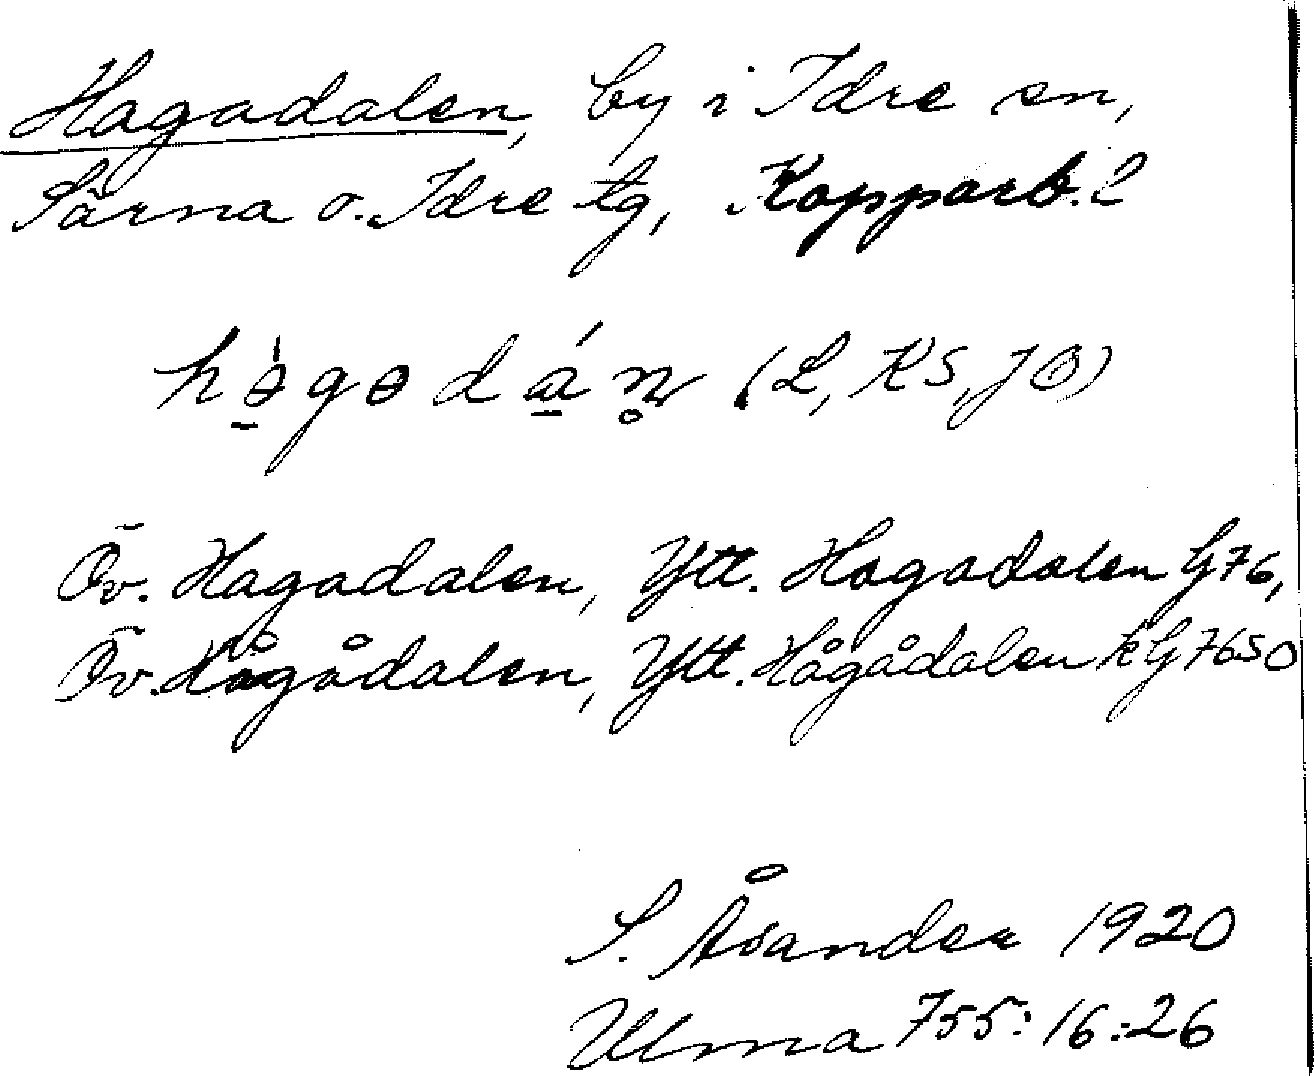 Hagadalen, by i Idre sn,
Särna o. Idre tg, Kopparb. l
hə̠̀gɵdá̠n̥ (L, KS, JÖ)
Öv. Hagadalen, Ytt. Hagadalen G76,
Öv. Hågådalen, Ytt. Hågådalen kG7650
S. Åsander 1920
Ulma 755:16:26